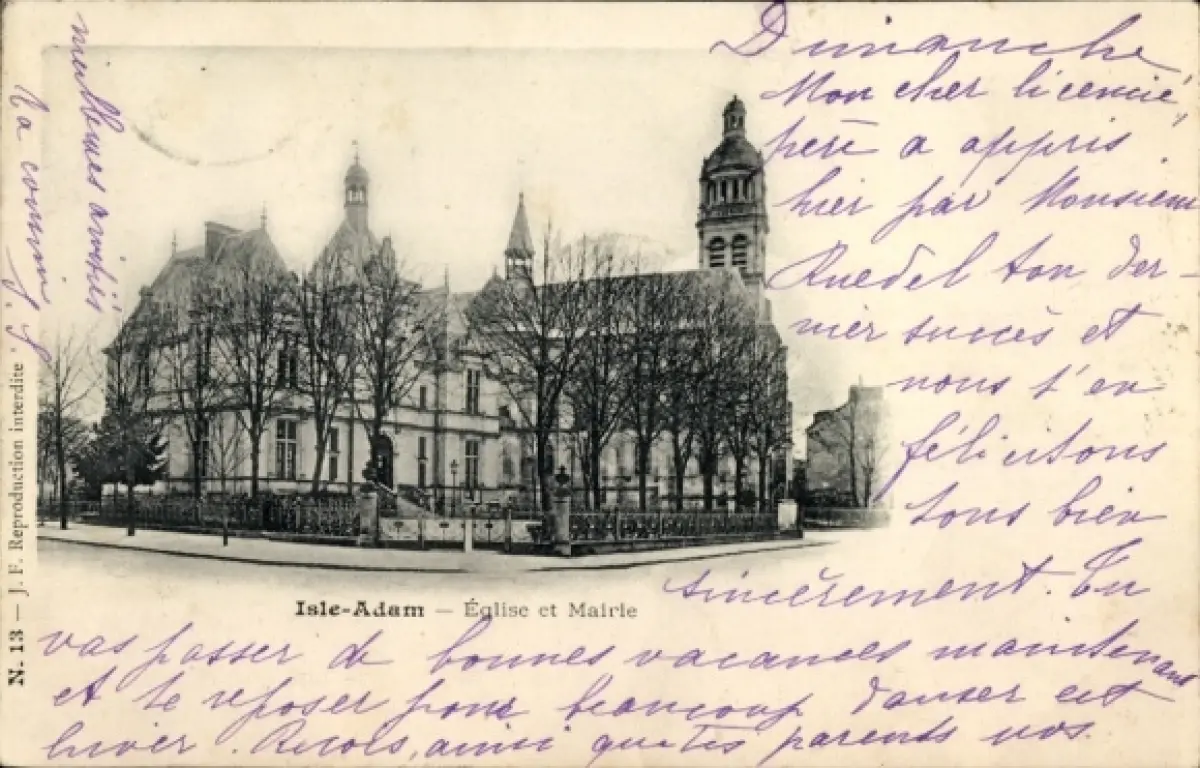 Dimanche
Mon cher licencié,
père a appris
hier par Monsieur
Ruedel ton der-
nier succès et
nous t'en
félicitons
tous bien
sincèrement. Tu
vas passer de bonnes vacances maintenant
et te reposer pour beaucoup danser cet
hiver. Reçois, ainsi que tes parents nos
meilleures amitiés
Ta cousine
Isle-Adam — Église et Mairie
N. 13 — J. F. Reproduction interdite